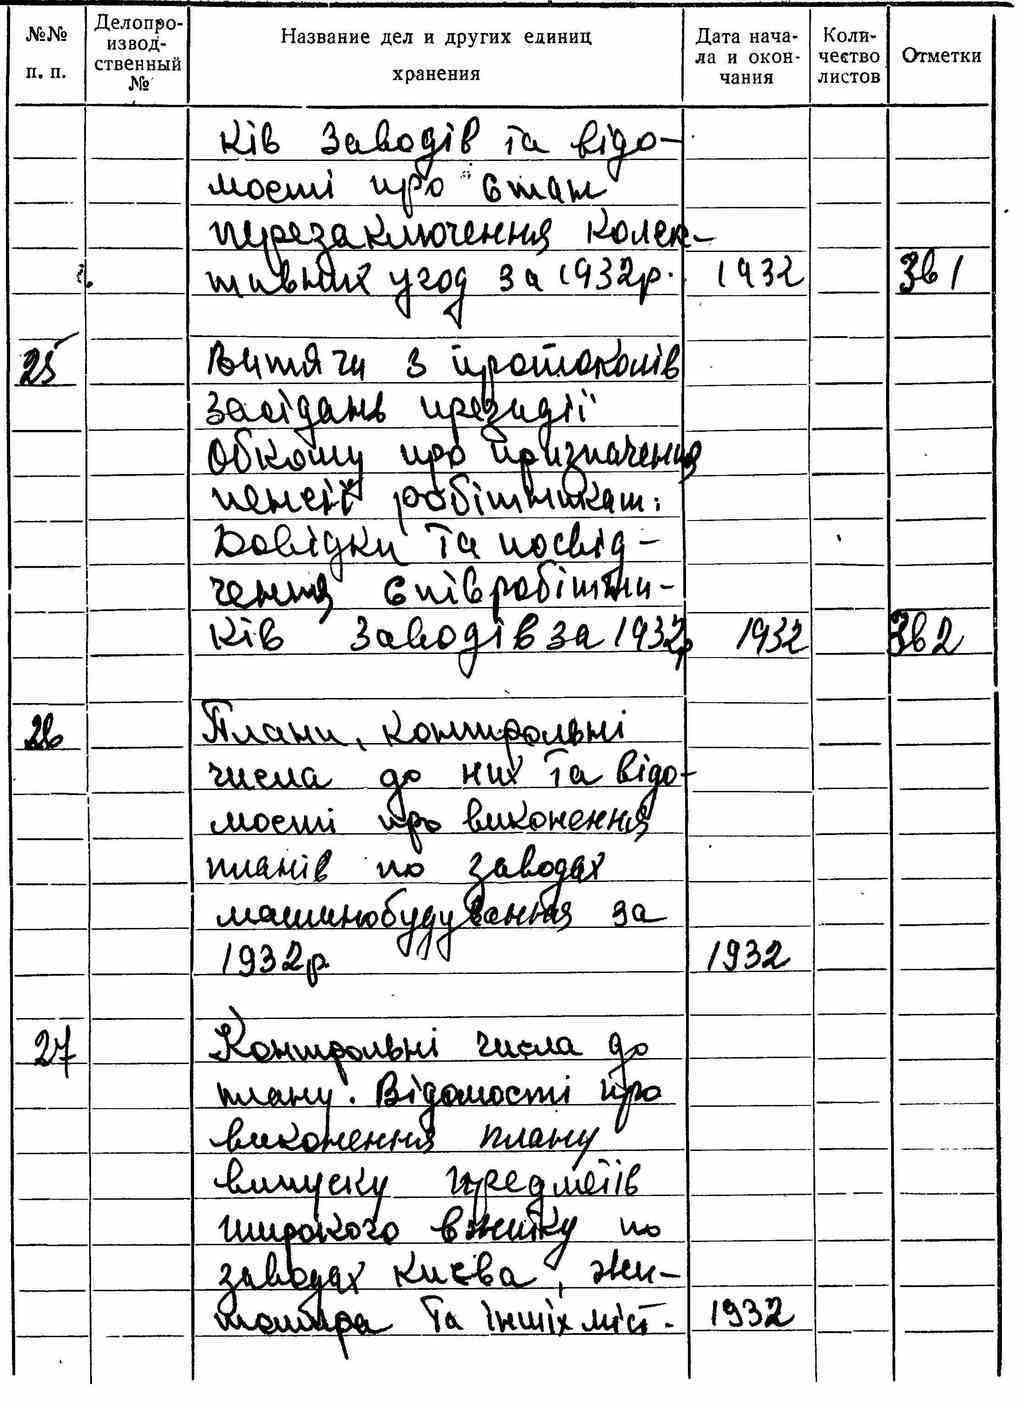 №№ п. п.
Делопро-
извод-
ственный
№
Название дел и других единиц
хранения
Дата нача-
ла и окон-
чания
Коли-
чество
листов
Отметки
ків заводів та відо-
мості про стан
перезаключення колек-
тивних угод за 1932р. 1932 Зв 1
25 Витяги з протоколів
засідань президії
Обкому про призначення
пенсії робітникам.
Довідки та посвід-
чення співробітни-
ків заводів за 1932р 1932 Зв 2
26 Плани, контрольні
числа до них та відо-
мості про виконення
планів по заводах
машинобудування за
1932р. 1932
27 Контрольні числа до
плану. Відомості про
виконення плану
випуску предметів
широкого вжитку по
заводах Києва, Жи-
томира та інших міст. 1932